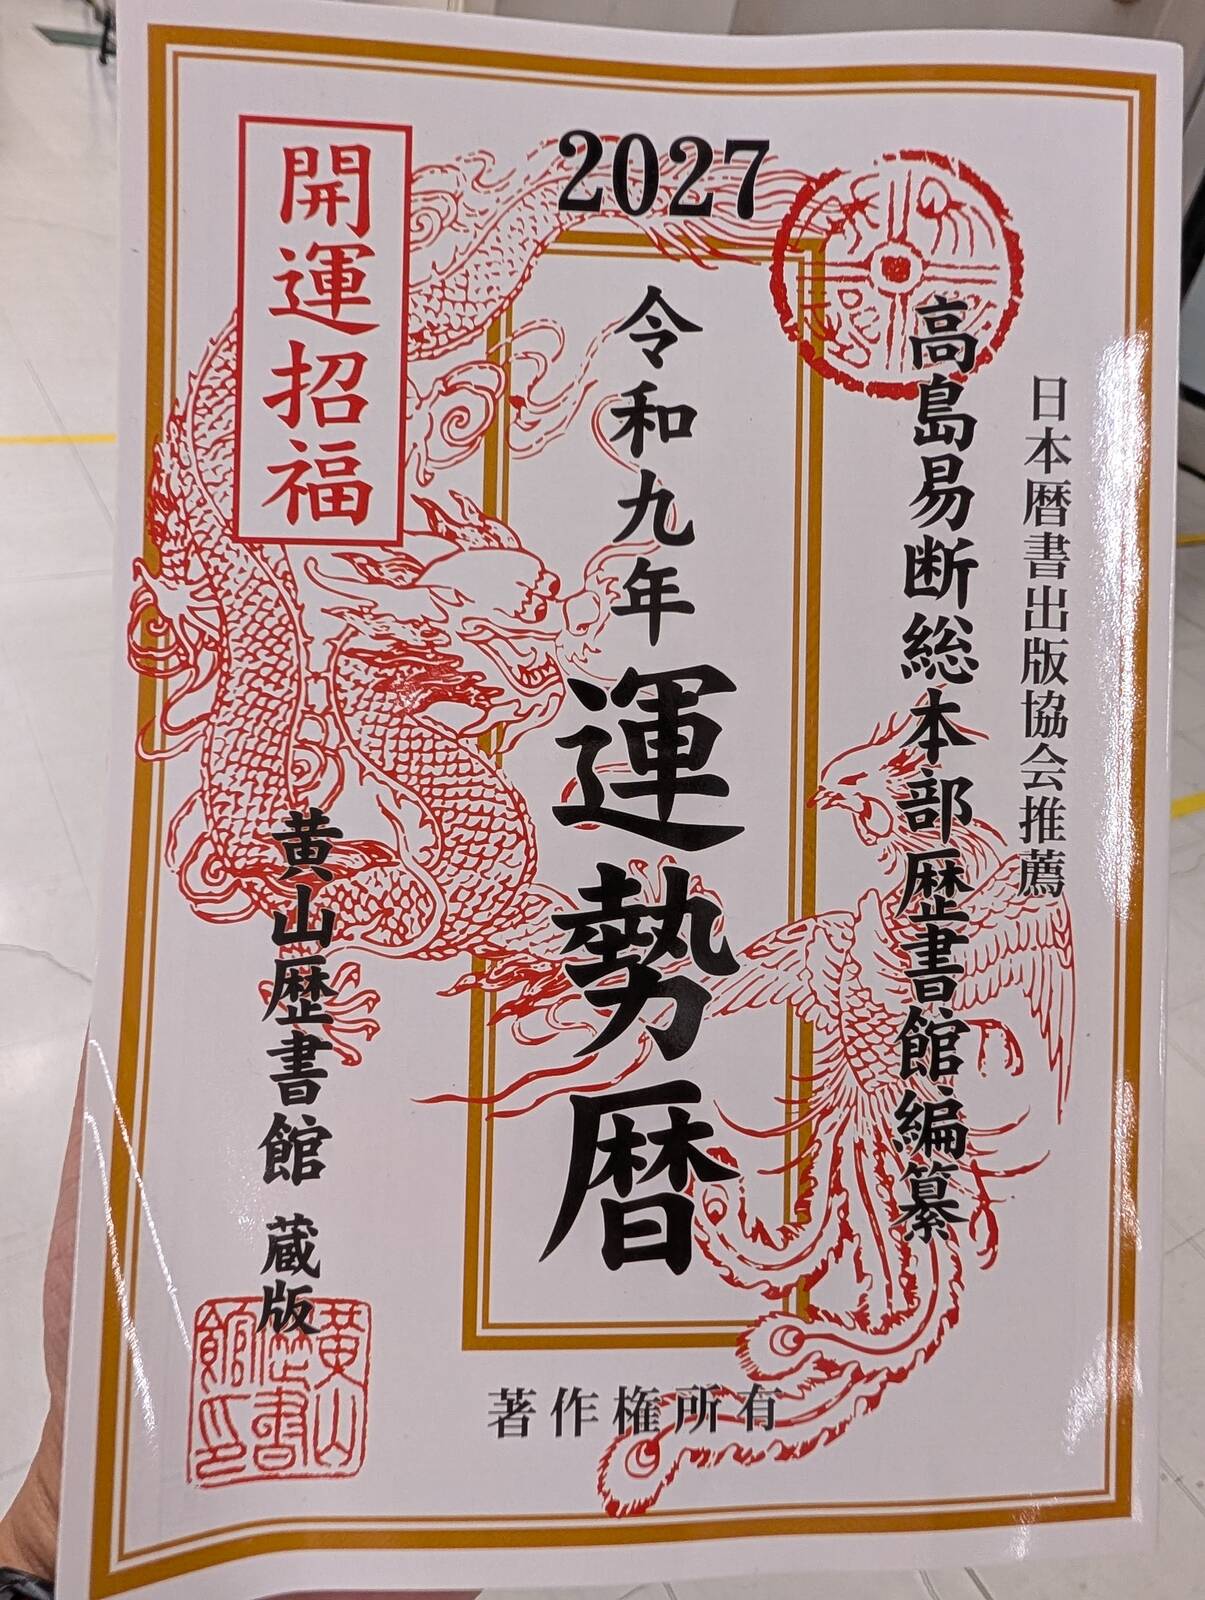 2027
日本暦書出版協会推薦
高島易断総本部歴書館編纂
令和九年
運勢暦
開運招福
黄山歴書館 蔵版
著作権所有
黄山
歴書
館印